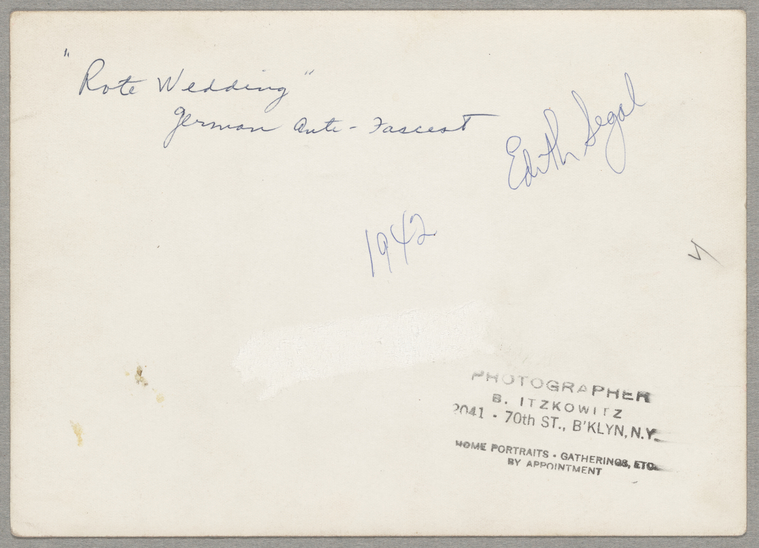 "Rote Wedding"
German Anti-Fascist
Edith Segal
1942
4
PHOTOGRAPHER
B. ITZKOWITZ
2041 - 70th ST., B'KLYN, N.Y.
HOME PORTRAITS - GATHERINGS, ETC.
BY APPOINTMENT